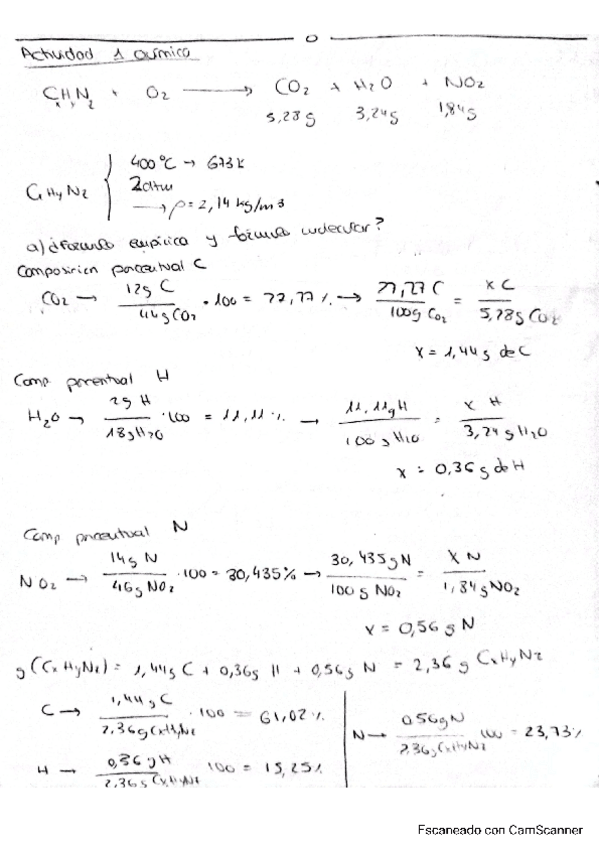 Actividad 1 Quimica
CxHyNz + O2 → CO2 + H2O + NO2
5,28g 3,24g 1,84g
400ºC → 673K
CxHyNz { 2atm
→ ρ = 2,14 kg/m3
a) ¿Formula empírica y fórmula molecular?
Composicion porcentual C
CO2 → 12g C / 44g CO2 · 100 = 27,27% → 27,27 C / 100g CO2 = x C / 5,28g CO2
x = 1,44g de C
Comp porcentual H
H2O → 2g H / 18g H2O · 100 = 11,11% → 11,11g H / 100g H2O = x H / 3,24g H2O
x = 0,36g de H
Comp porcentual N
NO2 → 14g N / 46g NO2 · 100 = 30,435% → 30,435g N / 100g NO2 = X N / 1,84g NO2
x = 0,56g N
g(CxHyNz) = 1,44g C + 0,36g H + 0,56g N = 2,36g CxHyNz
C → 1,44g C / 2,36g CxHyNz · 100 = 61,02%
N → 0,56g N / 2,36g CxHyNz 100 = 23,73%
H → 0,36g H / 2,36g CxHyNz 100 = 15,25%
Escaneado con CamScanner